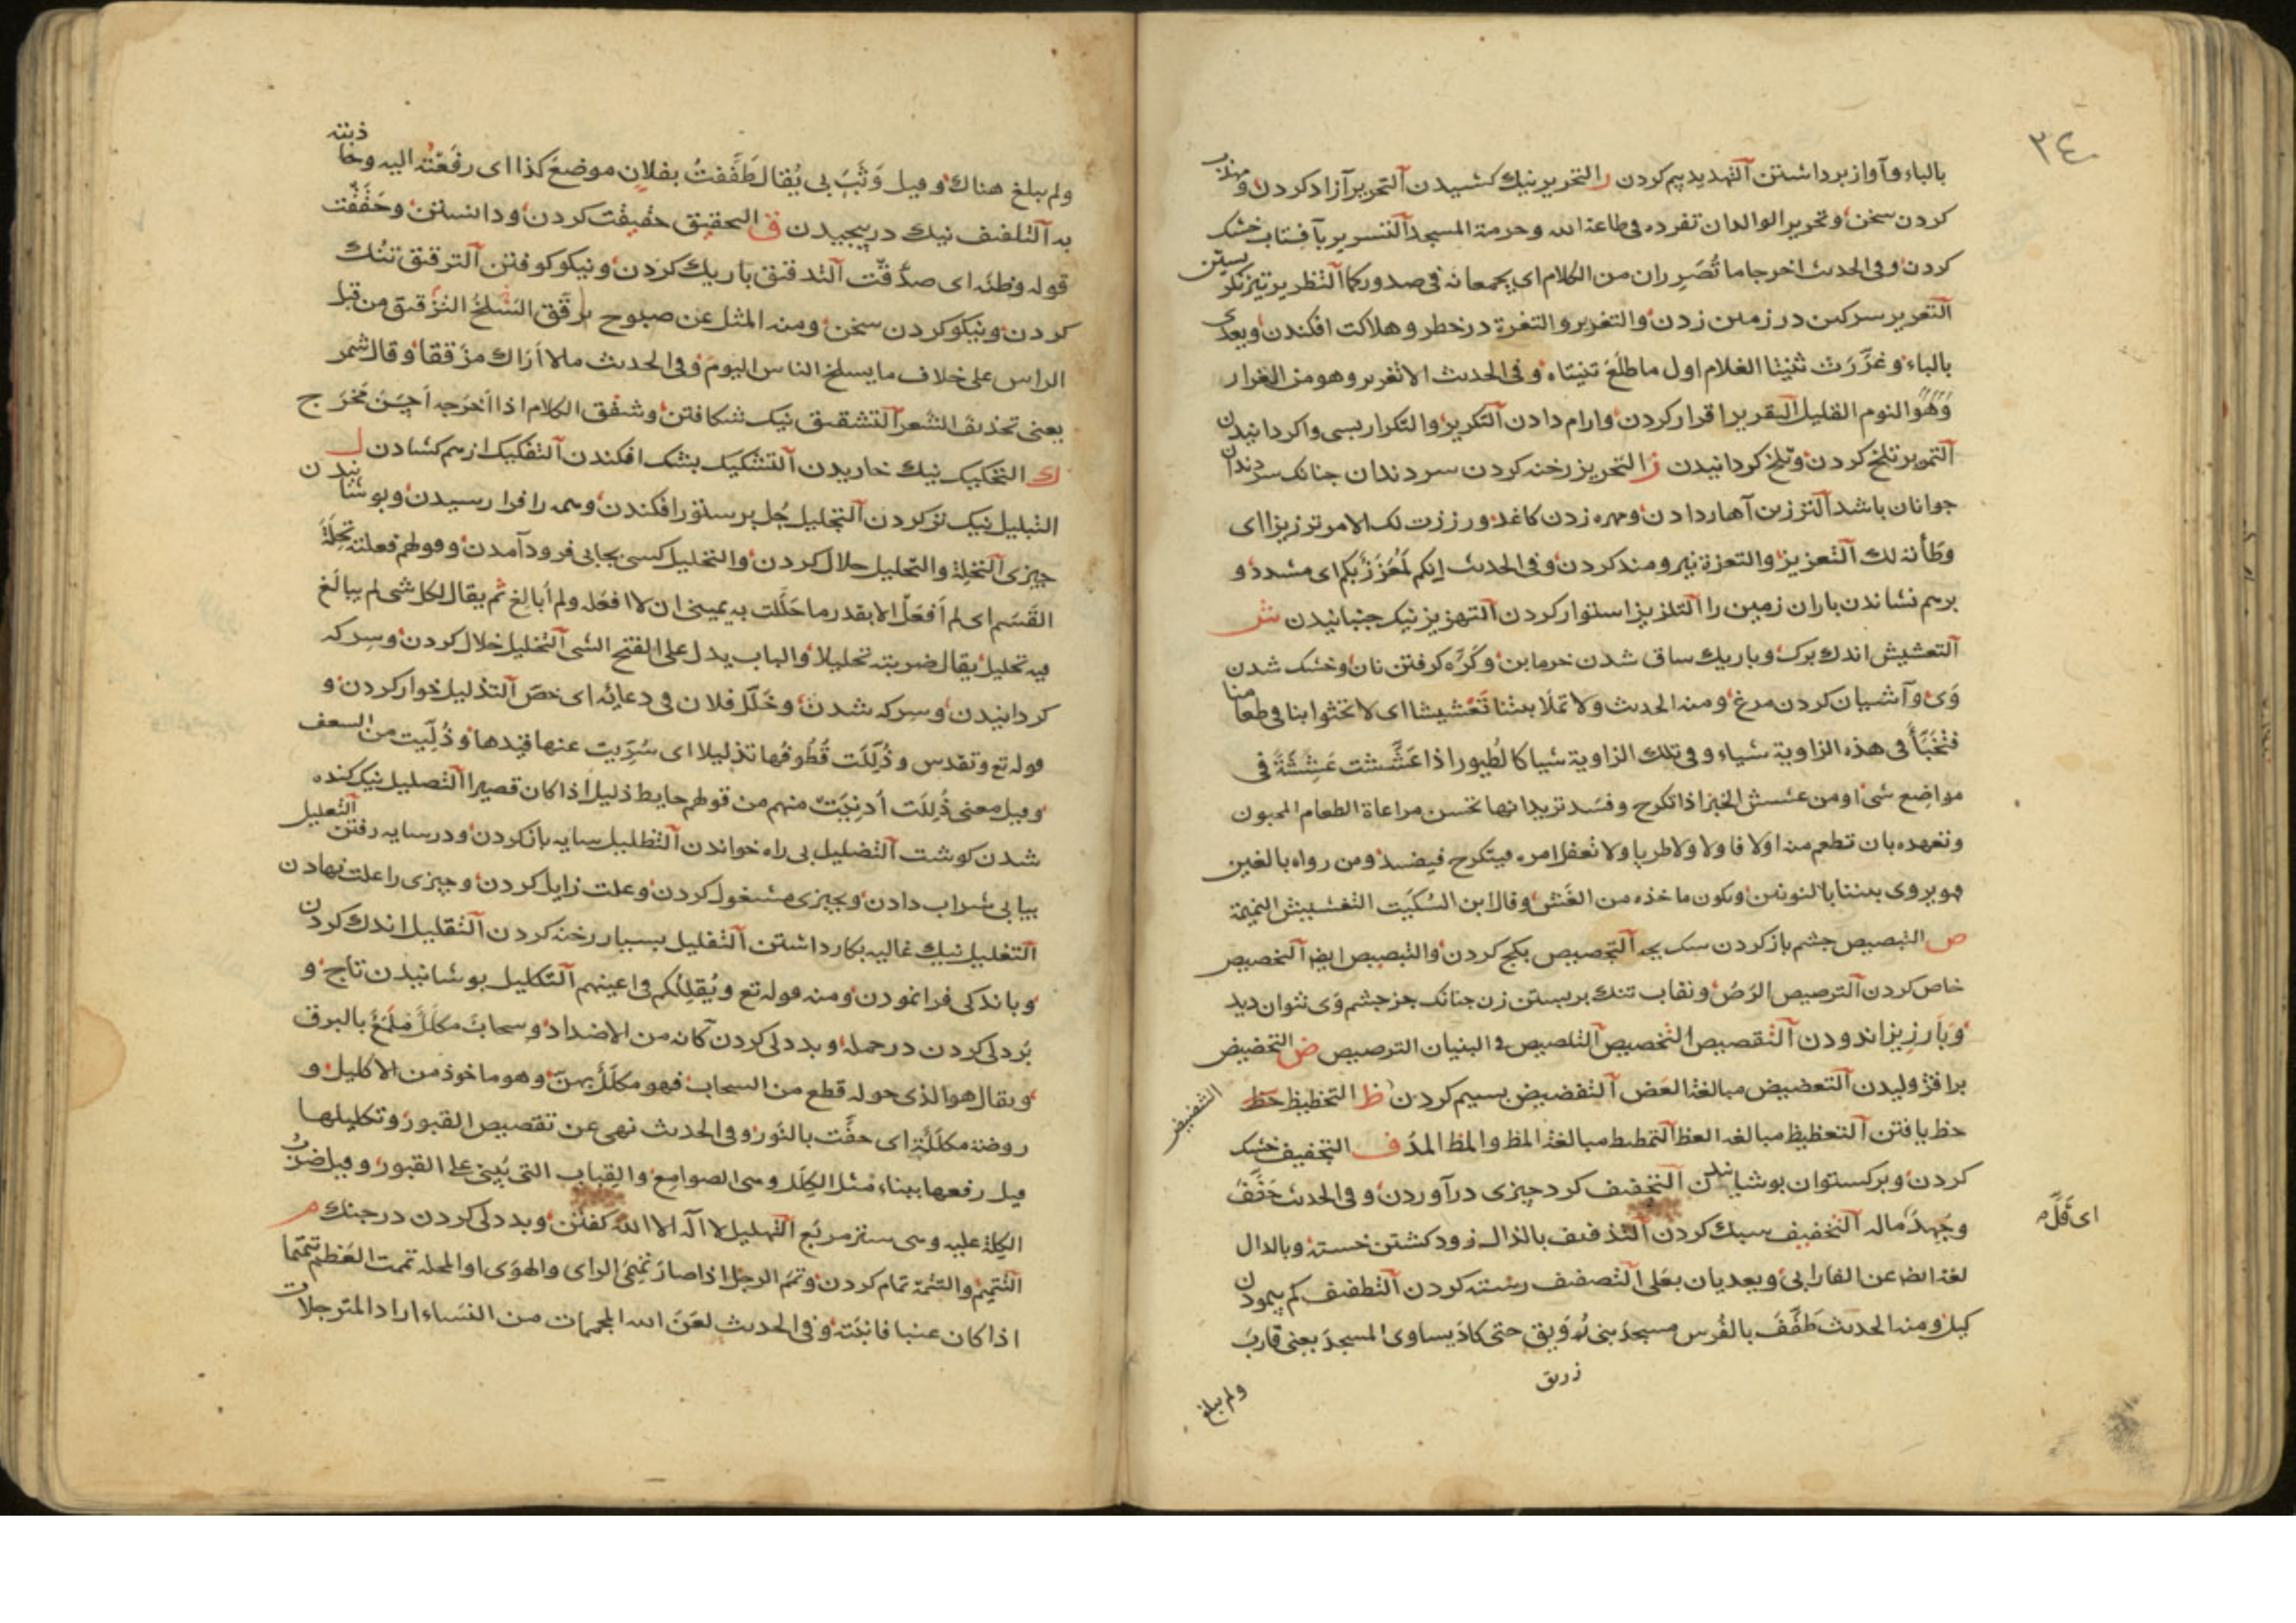 ٣٤
بالباء وآواز برداشتن آلتهديد بيم كردن ر التحرير نيك كشيدن آلتحرير آزاد كردن و مهذب
كردن سخن وتحرير الوالدان تفرده في طاعة الله وحرمة المسجد آلتسرير بآفتاب خشك
كردن وفي الحديث اخرجاما تُصَرِّران من الكلام اى يجمعانه في صدوركما آلتظرير تيز نكريستن
آلتعرير سركين در زمين زدن والتغرير والتغرة در خطر وهلاكت افكندن ويعدى
بالباء وغرّرت ثنيتا الغلام اول ما طلع ثنيتاه وفي الحديث الا تغرير وهو من الغرار
وهُوَ النوم القليل آلتقرير اقرار كردن وارام دادن آلتكرير والتكرار بسى واكردانيدن
آلتمرير تلخ كردن وتلخ كردانيدن ز التحزيز رخنه كردن سر دندان جنانك سر دندان
جوانان باشد آلترزيز آهار دادن ومهره زدن كاغد ورززت لك الامر ترزيزا اى
وطأته لك آلتعزيز والتعزة نيرومند كردن وفي الحديث انكم لَمُعَزَّزٌ بكم اى مشدد و
برهم نشاندن باران زمين را آلتلزيز استوار كردن آلتهزيز نيك جنبانيدن ش
آلتعشيش اندك برك وباريك ساق شدن خرما بن وكرّه كرفتن نان وخشك شدن
وى وآشيان كردن مرغ ومنه الحديث ولا تملأ بيتنا تَعْشيشا اى لا تخثوا بنا في طعامنا
فتُخَبّأ في هذه الزاوية شياء وفي تلك الزاوية شيا كالطيور اذا عَشّشت عَشْعَشَةً في
مواضع شىء ومن عشش الخبز اذا تكرج وفسد تريد انها تحسن مراعاة الطعام المخبون
وتعهده بان تطعم منه اولا فاولا ولا طريا ولا تغفل امره فيتكرج فيفسد ومن رواه بالغين
فهو يروى بيتنا بالنونين ويكون ماخذه من الغَشّ وقال ابن السِّكيت التغشيش النميمة
ص التبصيص جشم باز كردن سك بچه آلتجصيص بكج كردن والتبصيص ايض آلتخصيص
خاص كردن آلترصيص الرَصّ ونقاب تنك بربستن زن جنانك جز جشم وى نتوان ديد
وبارزيز اندودن آلتقصيص التخصيص آلتلصيص في البنيان الترصيص ض التحضيض
برافژوليدن آلتعضيض مبالغة العَض آلتفضيض بسيم كردن ظ التحظيظ حظ
الثضيض
حظ يافتن آلتعظيظ مبالغة العظ آلتمظيظ مبالغة المظ والمظ المدّ ف التجفيف خشك
كردن وبركستوان بوشانيدن آلتحفيف كرد جيزى درآوردن وفي الحديث حَفَّفَ
وجُهِدَ ماله آلتخفيف سبك كردن آلتذفيف بالذال زود كشتن خسته وبالدال
اى قَلَّ
لغة ايضا عن الفارابى ويعديان بعلى آلتصفيف رسته كردن آلتطفيف كم پيمودن
كيل ومنه الحديث طَفَّفَ بالفُرس مسجدَ بنى زُرَيق حتى كادَ يساوى المسجدَ يعنى قاربَ
زريق
ولم يبلغ
ولم يبلغ هناك وقيل وَثَبَ بى يُقال طَفَّفتُ بفلان موضعَ كذا اى رفَعْتُه اليه وحاذيته
به آلتلفيف نيك در پيچيدن ق التحقيق حقيقت كردن ودانستن وحَقَّقْت
قوله وظنّه اى صدّقت آلتدقيق باريك كردن ونيكو كوفتن آلترقيق تنُك
كردن ونيكو كردن سخن ومنه المثل عن صبوح يرقّق السَلخُ التزقيق من قبل
الراس على خلاف ما يسلخ الناس اليوم وفي الحديث ما لا أراك مزققا وقال شمر
يعنى تحذيفَ الشعر آلتشقيق نيك شكافتن وشقق الكلام اذا اخرجه احسن مخرج
ك التحكيك نيك خاريدن آلتشكيك بشك افكندن آلتفكيك از هم كشادن ل
التبليل نيك تر كردن آلتجليل جُل بر ستور افكندن وهمه را فرا رسيدن وبوشانيدن
جيزى آلتحِلّة والتحليل حلال كردن والتحليل كسى بجايى فرود آمدن وقولهم فعلته تحِلّةَ
القَسَم اى لم اَفعَل الا بقدر ما حَلّلت به يمينى ان لا افعله ولم أبالغ ثم يقال لكل شى لم يبالَغ
فيه تحليل يقال ضربته تحليلا والباب يدل على الفتح الشى آلتخليل خلال كردن وسِركه
كردانيدن وسركه شدن وخَلّل فلان في دعائه اى خصّ آلتذليل خوار كردن و
قوله تع وتقدس وذُلّلَت قُطُوفُها تذليلا اى سُوّيت عنها قيدها وذُلّيت من السعف
وقيل معنى ذُلِّلَت اُدنِيَتْ منهم من قولهم حايط ذليل اذا كان قصيرا التصليل نيك كنده
شدن كوشت آلتضليل بى راه خواندن آلتظليل سايه باز كردن ودر سايه رفتن التعليل
بيابى شراب دادن وبچيزى مشغول كردن وعلت زايل كردن وجيزى را علت نهادن
آلتغليل نيك غاليه بكار داشتن آلتفليل بسيار رخنه كردن آلتقليل اندك كردن
وباندكى فرا نمودن ومنه قوله تع ويُقلّلُكم في اعينهم آلتكليل بوشانيدن تاج و
بُردلى كردن در حمله وبددلى كردن كانه من الاضداد وسحابٌ مكلّلٌ مُلمَّعٌ بالبرق
ويقال هو الذى حوله قطع من السحاب فهو مكلّلٌ بهنّ وهو ماخوذ من الاكليل و
روضة مكلّلَة اى حفّت بالنَّور وفي الحديث نهى عن تقصيص القبور وتكليلها
قيل رفعها ببناء مثل الكِلَل وهى الصوامع والقِباب التى تُبنى على القبور وقيل ضرب
الكِلّة عليه وهى ستر مربّع التهليل لا اله الا الله كفتن وبددلى كردن در جنك م
التتميم والتتمّة تمام كردن وتمّم الرجل اذا صار تميمىّ الراى والهوى او المحلة تممت العظيم تتمتما
اذا كان عنبا فابنته وفي الحديث لعَنَ الله المجممات من النساء اراد المترجلات